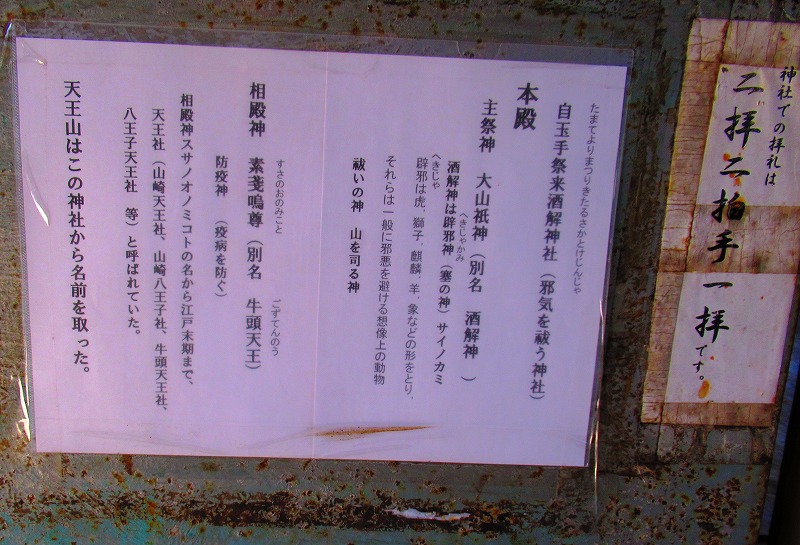 神社での拝礼は
二拝二拍手一拝です。
たまてよりまつりきたるさかとけじんじゃ
自玉手祭来酒解神社(邪気を祓う神社)
本殿
主祭神 大山祇神(別名 酒解神 )
へきじゃかみ
酒解神は辟邪神(塞の神)サイノカミ
へきじゃ
辟邪は虎、獅子、麒麟、羊、象などの形をとり、
それらは一般に邪悪を避ける想像上の動物
祓いの神 山を司る神
すさのおのみこと ごずてんのう
相殿神 素戔嗚尊(別名 牛頭天王)
防疫神 (疫病を防ぐ)
相殿神スサノオノミコトの名から江戸末期まで、
天王社(山崎天王社、山崎八王子社、牛頭天王社、
八王子天王社 等)と呼ばれていた。
天王山はこの神社から名前を取った。